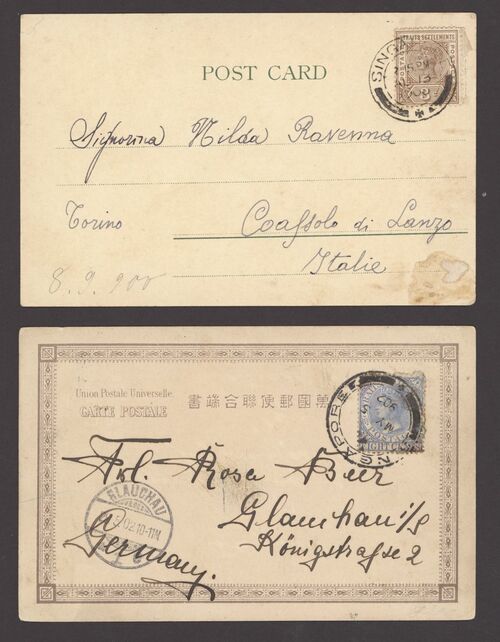 POST CARD
STRAITS SETTLEMENTS
SINGA
Signorina Nilda Ravenna
Torino
Coassolo di Lanzo
Italie
8.9.900
Union Postale Universelle.
CARTE POSTALE
書端合聯便郵國萬
SINGAPORE
MY
Frl. Rosa Beer
GLAUCHAU
02.10-11V
Glauchau i/S
Königstraße 2
Germany.